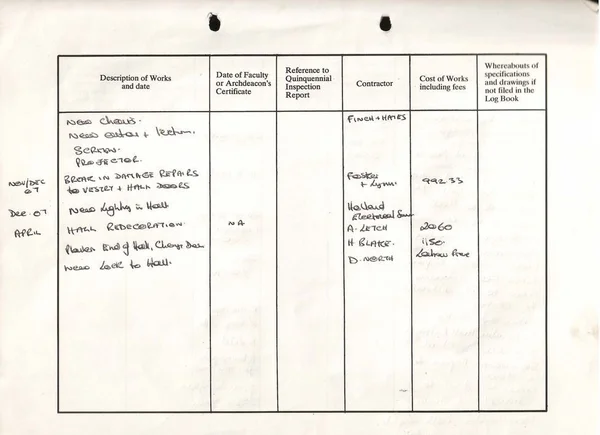 Description of Works
and date
Date of Faculty
or Archdeacon's
Certificate
Reference to
Quinquennial
Inspection
Report
Contractor
Cost of Works
including fees
Whereabouts of
specifications
and drawings if
not filed in the
Log Book
New Chairs. FINCH + HATES
New + lectern.
SCREEN.
PROJECTOR.
NOV/DEC 07 BREAK IN DAMAGE REPAIRS
to VESTRY + HALL DOORS Foster + Lynn. 992 33
Dec. 07 New Lighting in Hall Holland Electrical
APRIL HALL REDECORATION. NA A. LETCH 2060
End of Hall, H BLAKE. 1150.
New to Hall. D. NORTH